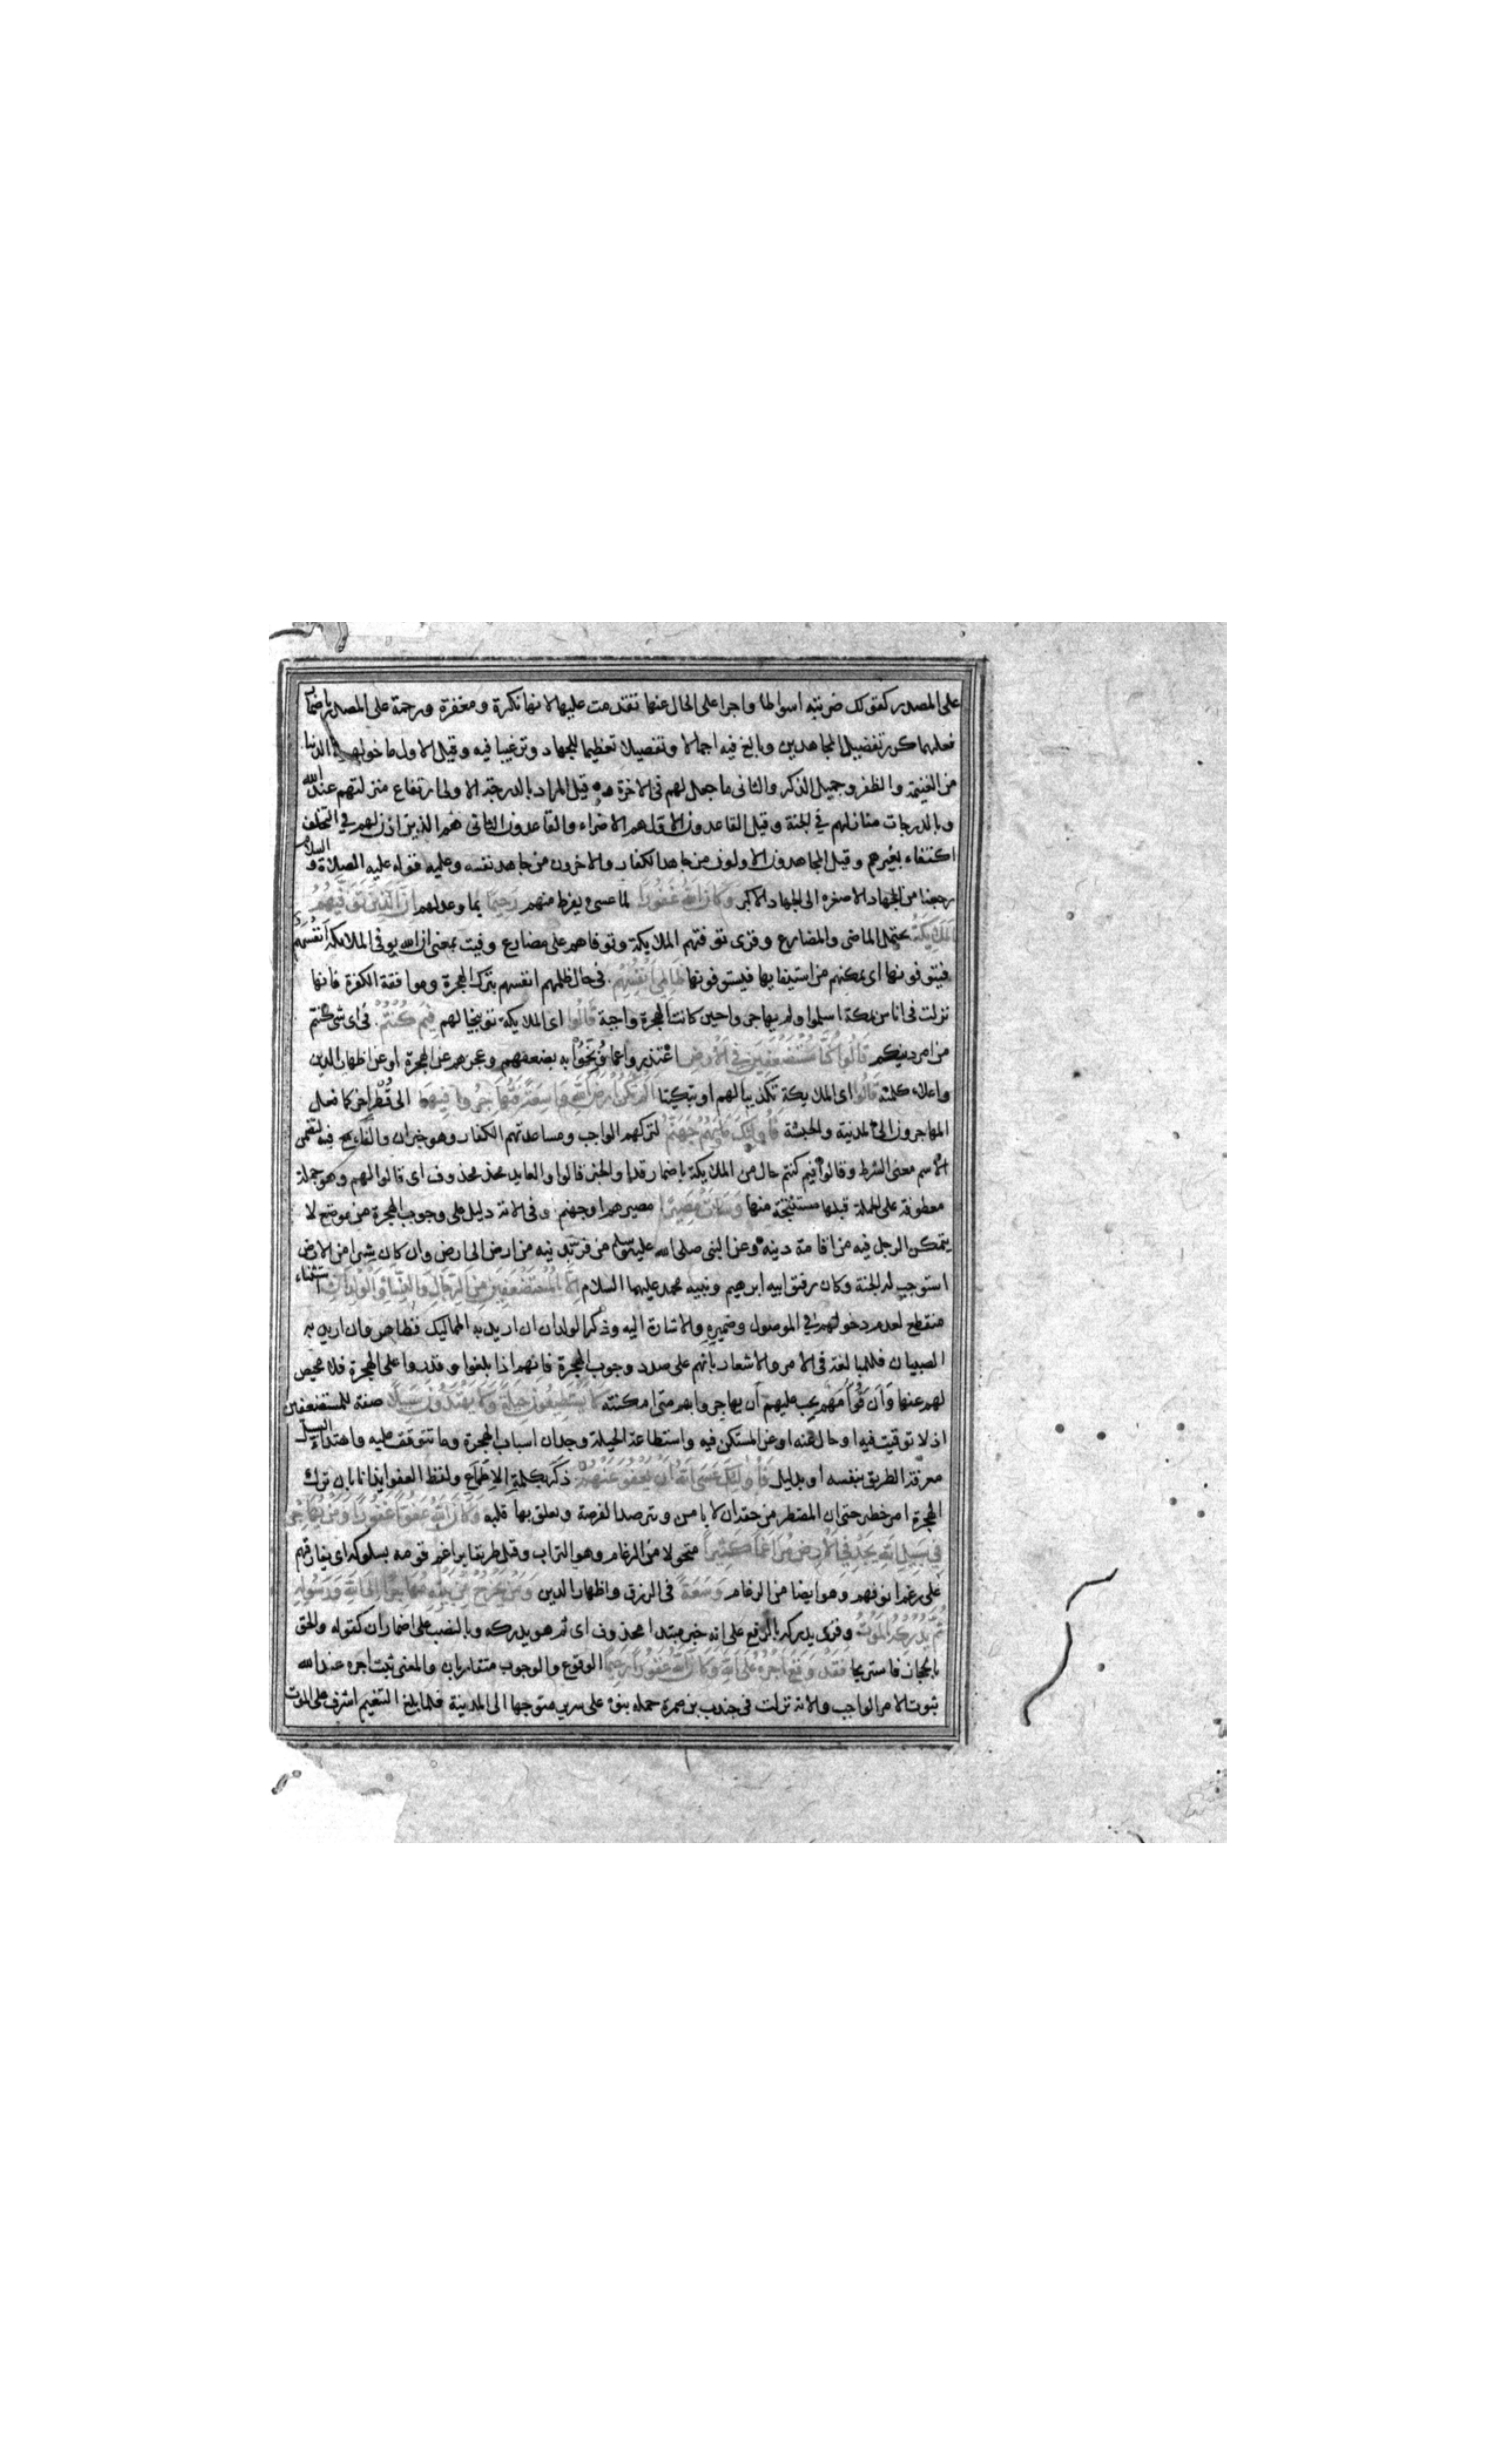 على المصدر كقولك ضربته اسواطا واجرا على الحال عنها تقدمت عليها لانها نكرة ومغفرة ورحمة على المصدر باضمار
فعلهما كرر تفضيل المجاهدين وبالغ فيه اجمالا وتفصيلا تعظيما للجهاد وترغيبا فيه وقيل الاول ما خولهم في الدنيا
من الغنيمة والظفر وجميل الذكر والثانى ما جعل لهم فى الاخرة وقيل المراد بالدرجة الاولى ارتفاع منزلتهم عند الله
وبالدرجات منازلهم في الجنة وقيل القاعدون الاول هم الاضراء والقاعدون الثانى هم الذين اذن لهم في التخلف
اكتفاء بغيرهم وقيل المجاهدون الاولون من جاهد الكفار والاخرون من جاهد نفسه وعليه قوله عليه الصلاة و السلام
رجعنا من الجهاد الاصغر الى الجهاد الاكبر وَكَانَ اللّٰهُ غَفُورًا لما عسى يفرط منهم رَحِيمًا بما وعد لهم اِنَّ الَّذِينَ تَوَفّٰيهُمُ
الْمَلٰئِكَةُ يحتمل الماضى والمضارع وقرى توفتهم الملايكة وتوفاهم على مضارع وفيت بمعنى ان الله يوفى الملايكة اَنفُسهم
فيتوفونها اى يمكنهم من استيفايها فيستوفونها ظَالِمِى اَنْفُسِهِمْ فى حال ظلمهم انفسهم بترك الهجرة وموافقة الكفرة فانها
نزلت فى اناس بمكة اسلموا ولم يهاجروا حين كانت الهجرة واجبة قَالُوا اى الملايكة توبيخا لهم فِيمَ كُنْتُمْ فى اى شى كنتم
من امر دينكم قَالُوا كُنَّا مُسْتَضْعَفِينَ فِى الْاَرْضِ اعتذروا مما وُبّخوا به بضعفهم وعجزهم عن الهجرة او عن اظهار الدين
واعلاء كلمته قَالُوا اى الملايكة تكذيبا لهم او تبكيتا اَلَمْ تَكُنْ اَرْضُ اللّٰهِ وَاسِعَةً فَتُهَاجِرُوا فِيهَا الى قُطْرٍ اخر كما فعل
المهاجرون الى المدينة والحبشة فَاُولٰئِكَ مَأْوٰيهُمْ جَهَنَّمُ لتركهم الواجب ومساعدتهم الكفار وهو خبر ان والفاء فيه لتضمن
الاسم معنى الشرط وقالوا فيم كنتم حال من الملايكة باضمار قد او الخبر قالوا والعايد محذوف اى قالوا لهم وهو جملة
معطوفة على الجملة قبلها مستنتجة منها وَسَاءَتْ مَصِيرًا مصيرهم او جهنم وفى الاية دليل على وجوب الهجرة من موضع لا
يتمكن الرجل فيه من اقامة دينه وعن النبى صلى الله عليه وسلم من فر بدينه من ارض الى ارض وان كان شبرا من الارض
استوجب له الجنة وكان رفيق ابيه ابرهيم ونبيه محمد عليهما السلام اِلَّا الْمُسْتَضْعَفِينَ مِنَ الرِّجَالِ وَالنِّسَاءِ وَالْوِلْدَانِ استثناء
منقطع لعدم دخولهم في الموصول وضميره والاشارة اليه وذكر الولدان ان اريد به المماليك فظاهر وان اريد به
الصبيان فللمبالغة فى الامر والاشعار بانهم على صدد وجوب الهجرة فانهم اذا بلغوا وقدروا على الهجرة فلا محيص
لهم عنها وَاَن قُوّامَهم يجب عليهم اَن يهاجروا بهم متى امكنته لَا يَسْتَطِيعُونَ حِيلَةً وَلَا يَهْتَدُونَ سَبِيلًا صفة للمستضعفين
اذ لا توقيت فيه او حال منه او عن المستكن فيه واستطاعة الحيلة وجدان اسباب الهجرة وما تتوقف عليه واهتداء السبيل
معرفة الطريق بنفسه او بدليل فَاُولٰئِكَ عَسَى اللّٰهُ اَنْ يَعْفُوَ عَنْهُمْ ذكر بكلمة الاِطمَاع ولفظ العفو ايذانا بان ترك
الهجرة امر خطير حتى ان المضطر من حقه ان لا يامن ويترصد الفرصة ويعلق بها قلبه وَكَانَ اللّٰهُ عَفُوًّا غَفُورًا وَمَنْ يُهَاجِرْ
فِى سَبِيلِ اللّٰهِ يَجِدْ فِى الْاَرْضِ مُرَاغَمًا كَثِيرًا متحولا من الرغام وهو التراب وقيل طريقا يراغم قومه بسلوكه اى يفارقهم
على رغم انوفهم وهو ايضا من الرغام وَسَعَةً فى الرزق واظهار الدين وَمَنْ يَخْرُجْ مِنْ بَيْتِهِ مُهَاجِرًا اِلَى اللّٰهِ وَرَسُولِهِ
ثُمَّ يُدْرِكْهُ الْمَوْتُ وقرى يدركه بالرفع على انه خبر مبتدا محذوف اى ثم هو يدركه وبالنصب على اضمار ان كقوله والحق
بالحجاز فاستريحا فَقَدْ وَقَعَ اَجْرُهُ عَلَى اللّٰهِ وَكَانَ اللّٰهُ غَفُورًا رَحِيمًا الوقوع والوجوب متقاربان والمعنى ثبت اجره عند الله
ثبوت الامر الواجب والاية نزلت فى جندب بن ضمرة حمله بنوه على سرير متوجها الى المدينة فلما بلغ التنعيم اشرف على الموت